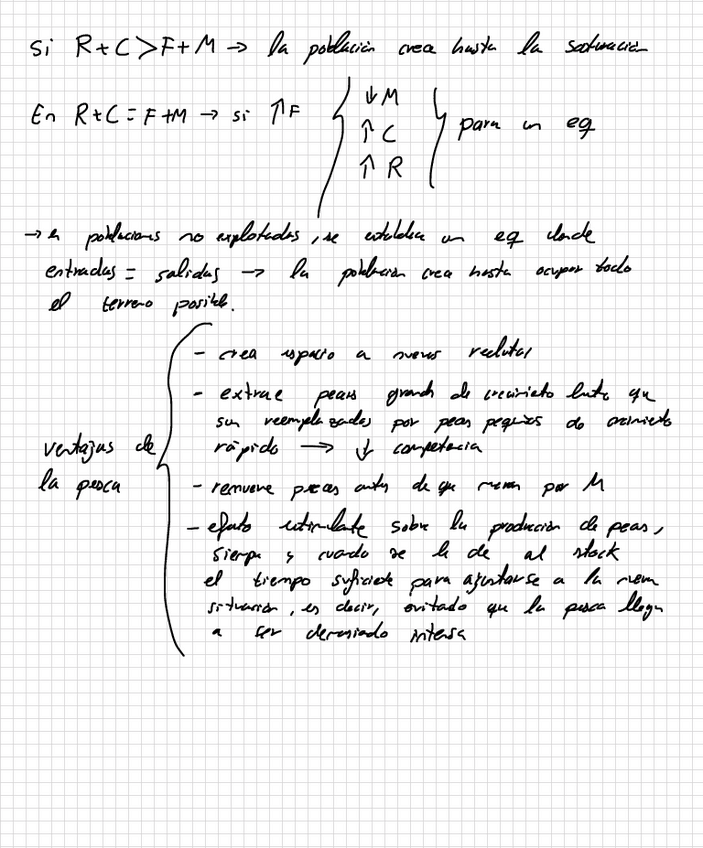 Si R+C>F+M → la población crece hasta la saturación
En R+C=F+M → si ↑F { ↓M ↑C ↑R } para un eq
→ en poblaciones no explotadas, se establece un eq donde
entradas = salidas → la población crece hasta ocupar todo
el terreno posible.
ventajas de la pesca {
- crea espacio a nuevos reclutas
- extrae peces grands de crecimiento lento que
son reemplazados por peces pequeños de crecimiento
rápido → ↓ competencia
- remueve peces antes de que mueran por M
- efecto estimulante sobre la producción de peces,
siempre y cuando se le de al stock
el tiempo suficiente para ajustarse a la nueva
situación, es decir, evitando que la pesca llegue
a ser demasiado intensa